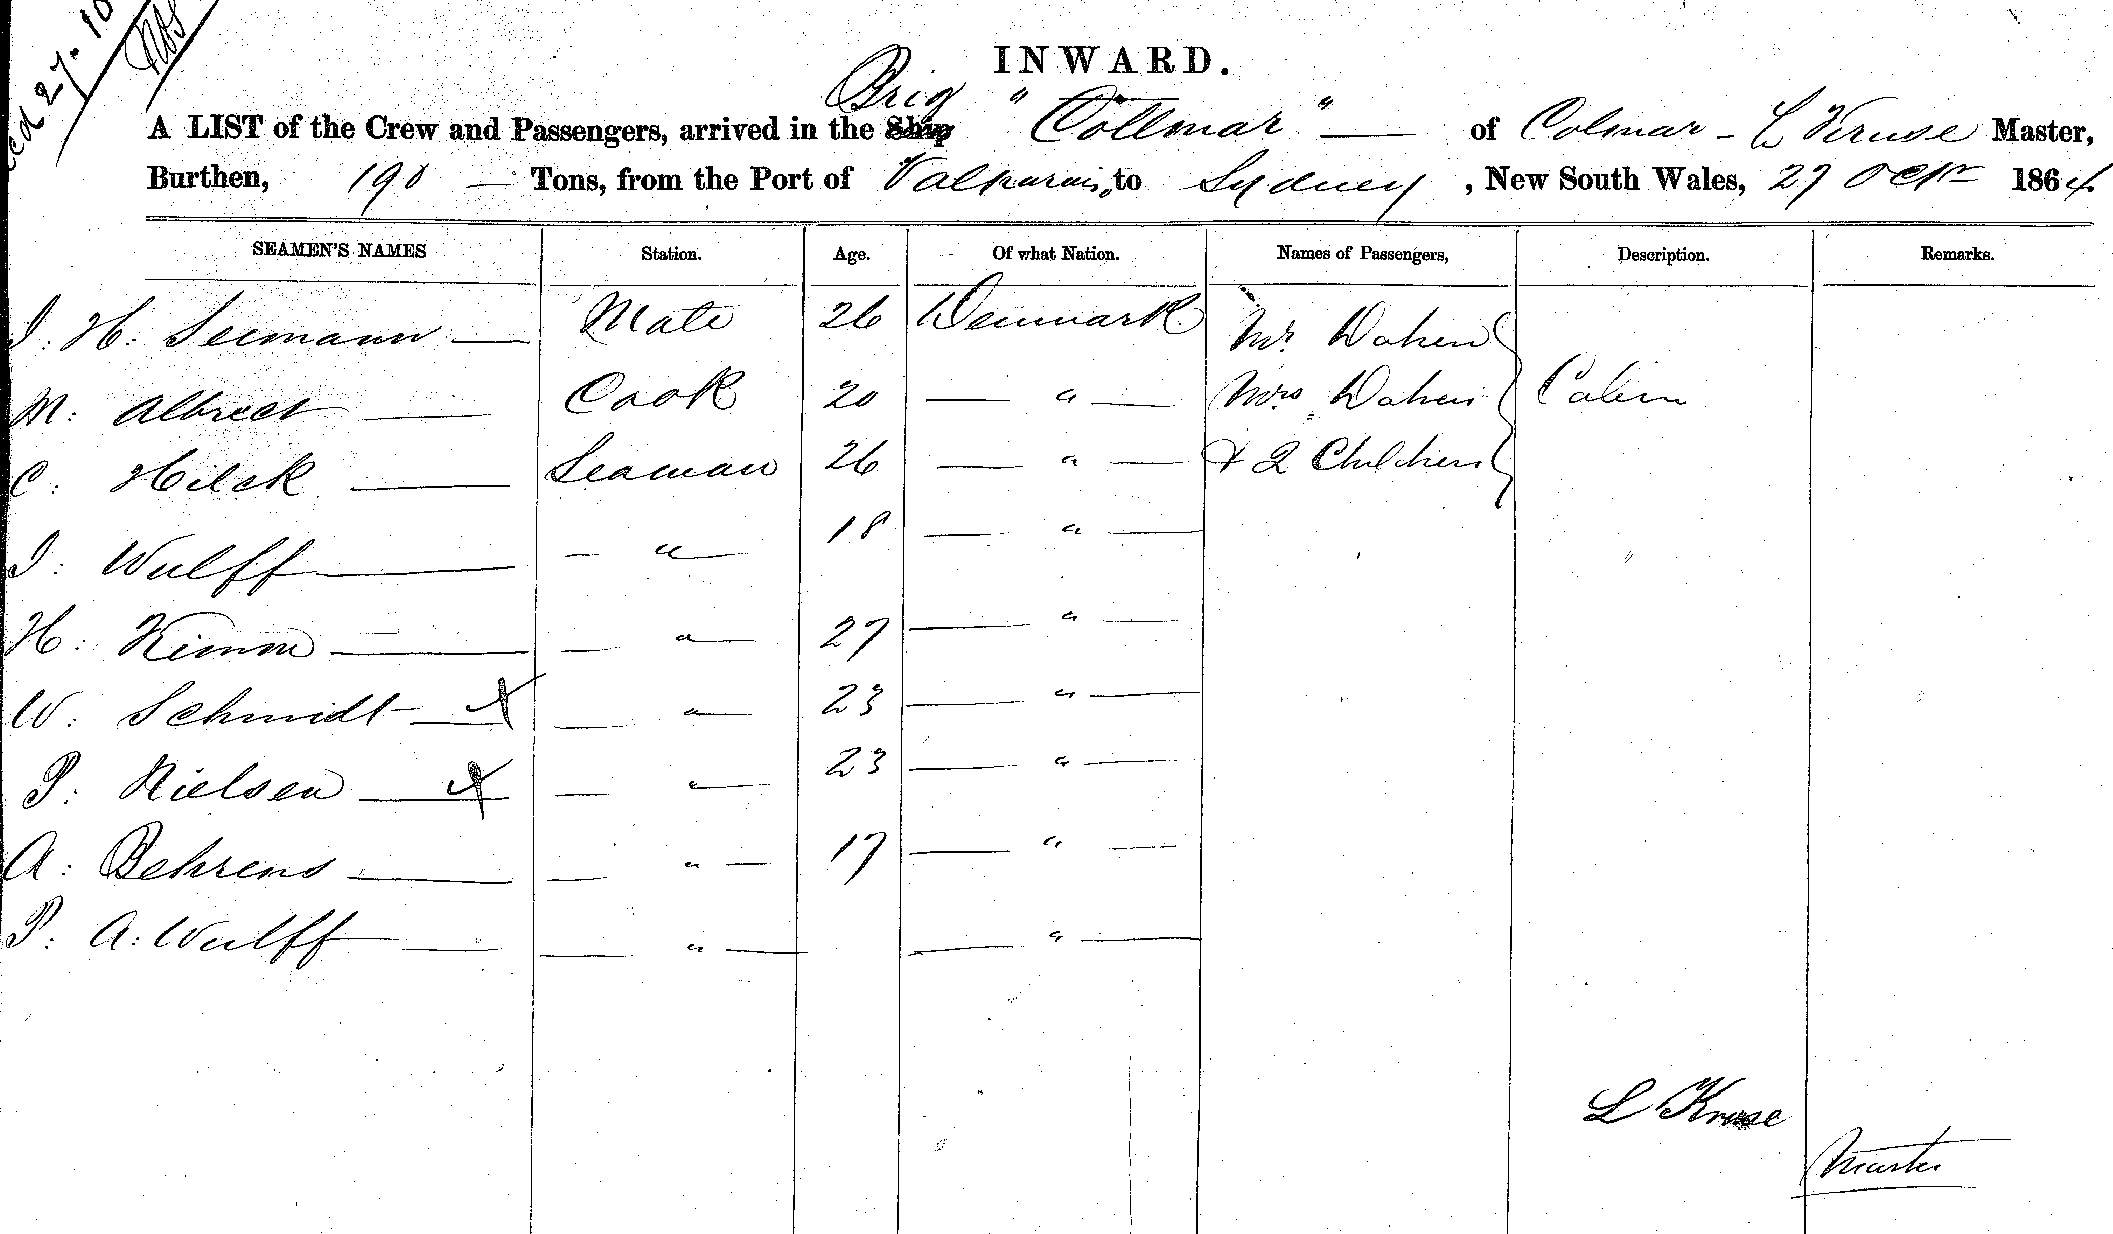 27. 10
INWARD.
Brig
A LIST of the Crew and Passengers, arrived in the Ship "Collmar" — of Colmar - L Kruse Master,
Burthen, 190 — Tons, from the Port of Valparaiso, to Sydney, New South Wales, 27 Octr 1864
SEAMEN'S NAMES Station. Age. Of what Nation. Names of Passengers, Description. Remarks.
J. H: Seemann — Mate 26 Denmark Mr. Dohen
M: Albrect — Cook 20 — " — Mrs Dohen Cabin
C: Hilck — Seaman 26 — " — + 2 Children
J: Wulff — — " — 18 — " —
H: Kimm — — " — 27 — " —
W: Schmidt — X — " — 23 — " —
P: Nielsen — X — " — 23 — " —
A: Behrens — — " — 17 — " —
P: A: Wulff — — " — — " —
L Kruse
Master